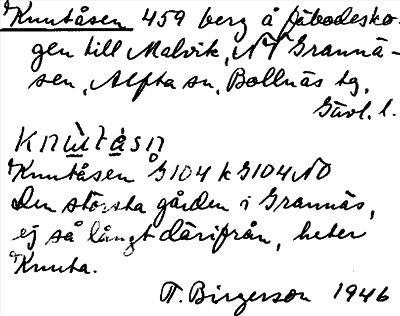 Knutåsen 459 berg å fäbodesko-
gen till Malvik, NV Grannä-
sen, Alfta sn, Bollnäs tg,
Gävl. l.
knùtåsn
Knutåsen G104 k G104 NO
Den största gården i Grannäs,
ej så långt därifrån, heter
Knuta.
T. Birgerson 1946